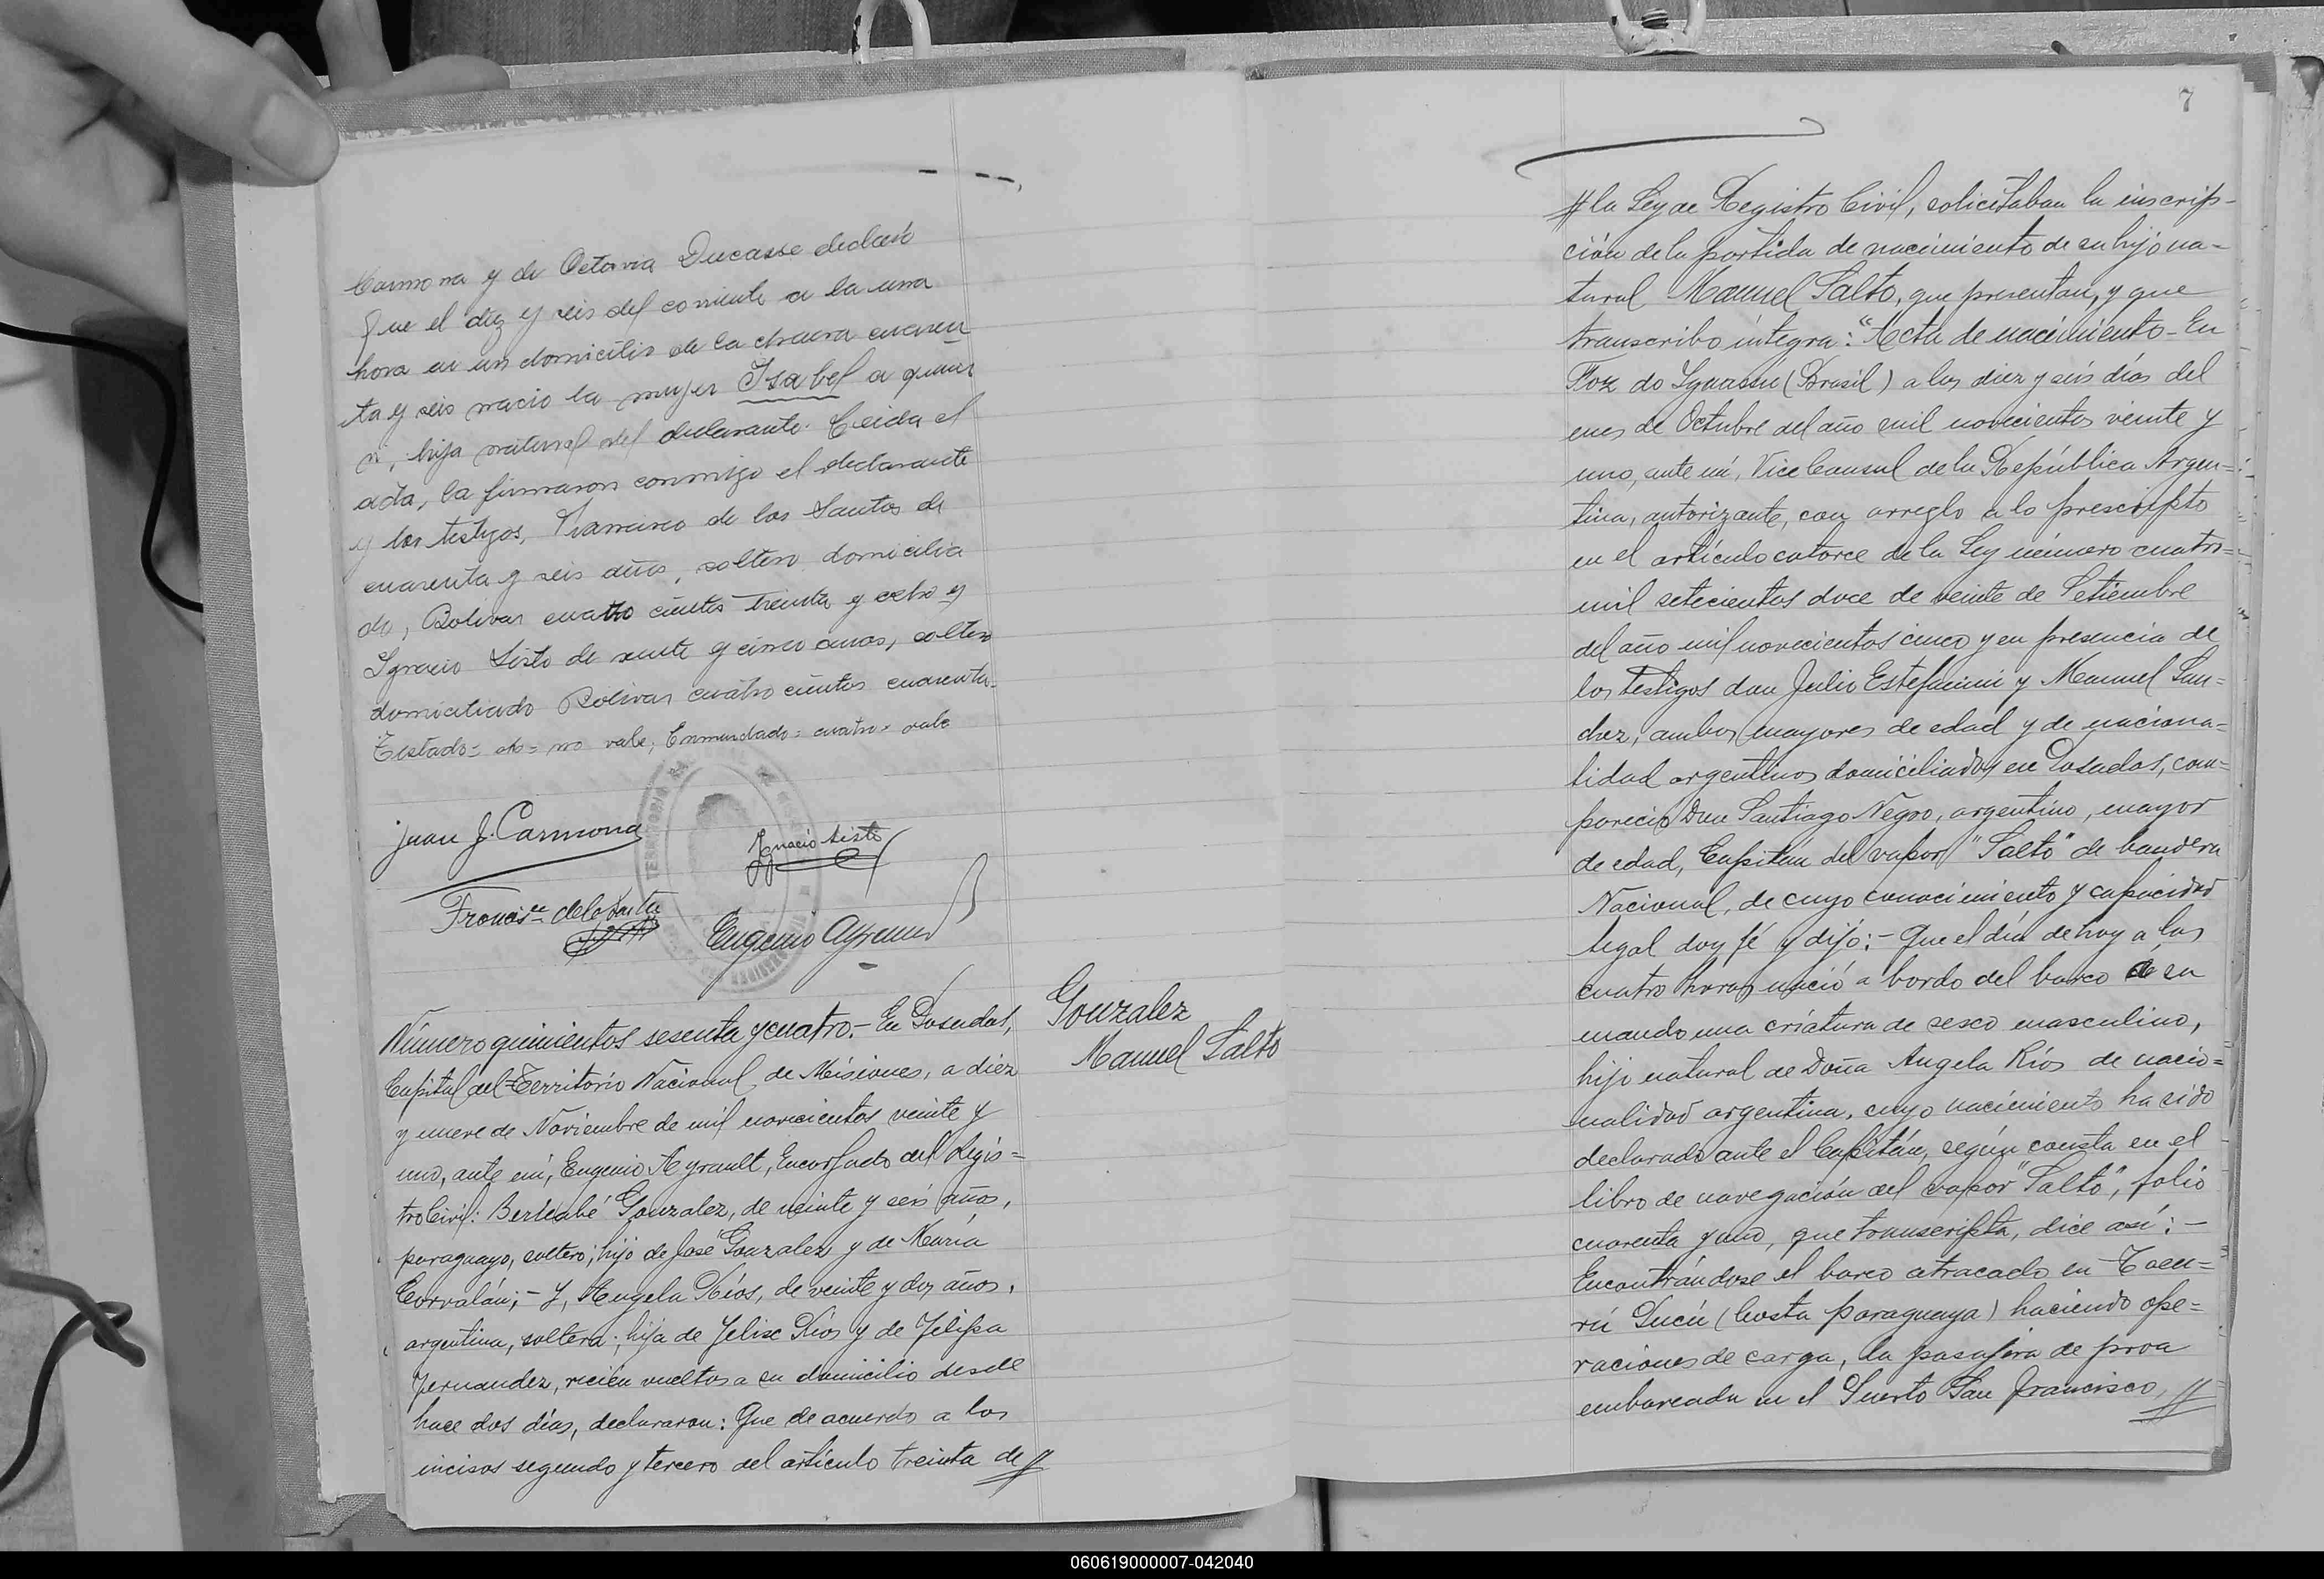 Carmona y de Octavia Ducasse declaró
Que el diez y seis del corriente a la una
hora en su domicilio de la chacra cuaren
ta y seis nacio la mujer Isabel a quien
vi, hija natural del declarante. Leida el
acta, la firmaron conmigo el declarante
y los testigos, Francisco de los Santos de
cuarenta y seis años, soltero domicilia
do, Bolivar cuatro cientos treinta y ocho y
Ignacio Sisto de veinte y cinco años, soltero
domiciliado Bolivar cuatro cientos cuarenta-
Testado= = no vale; Enmendado= cuatro= vale
Juan J. Carmona
Ignacio Sisti
TERRITORIO
Eugenio Ayrault
Número quinientos sesenta y cuatro.- En Posadas,
Capital del Territorio Nacional de Misiones, a diez
y nueve de Noviembre de mil novecientos veinte y
uno, ante mí, Eugenio Ayrault, Encargado del Regis=
tro Civil: Bernabé Gonzalez, de veinte y seis años,
paraguayo, soltero; hijo de José Gonzalez y de María
Corvalán;- Y, Angela Ríos, de veinte y dos años,
argentina, soltera; hija de Felix Ríos y de Felipa
Fernandez, recién vueltos a su domicilio desde
hace dos días, declararon: Que de acuerdo a los
incisos segundo y tercero del artículo treinta de //
Gonzalez
Manuel Salto
7
// la Ley de Registro Civil, solicitaban la inscrip-
ción de la partida de nacimiento de su hijo na-
tural Manuel Salto, que presentan, y que
transcribo íntegra: "Acta de nacimiento - En
Foz do Iguassu (Brasil) a los diez y seis días del
mes de Octubre del año mil novecientos veinte y
uno, ante mí, Vice Consul de la República Argen=
tina, autorizante, con arreglo a lo prescripto
en el artículo catorce de la Ley número cuatro=
mil setecientos doce de veinte de Setiembre
del año mil novecientos cinco y en presencia de
los testigos don Julio Estefanini y Manuel San=
chez, ambos mayores de edad y de naciona=
lidad argentinos domiciliados en Posadas, com=
pareció Don Santiago Negro, argentino, mayor
de edad, Capitán del vapor "Salto" de bandera
Nacional, de cuyo conocimiento y capacidad
legal doy fé y dijó:- Que el día de hoy a las
cuatro horas nació a bordo del barco de su
mando una criatura de sesco masculino,
hijo natural de Doña Angela Ríos de nacio=
nalidad argentina, cuyo nacimiento ha sido
declarado ante el Capitán, según consta en el
libro de navegación del vapor "Salto", folio
cuarenta y uno, que transcripta, dice así:-
Encontrándose el barco atracado en Tacu=
rú Pucú (Costa paraguaya) haciendo ope=
raciones de carga, la pasajera de proa
embarcada en el Puerto San Francisco, //
060619000007-042040